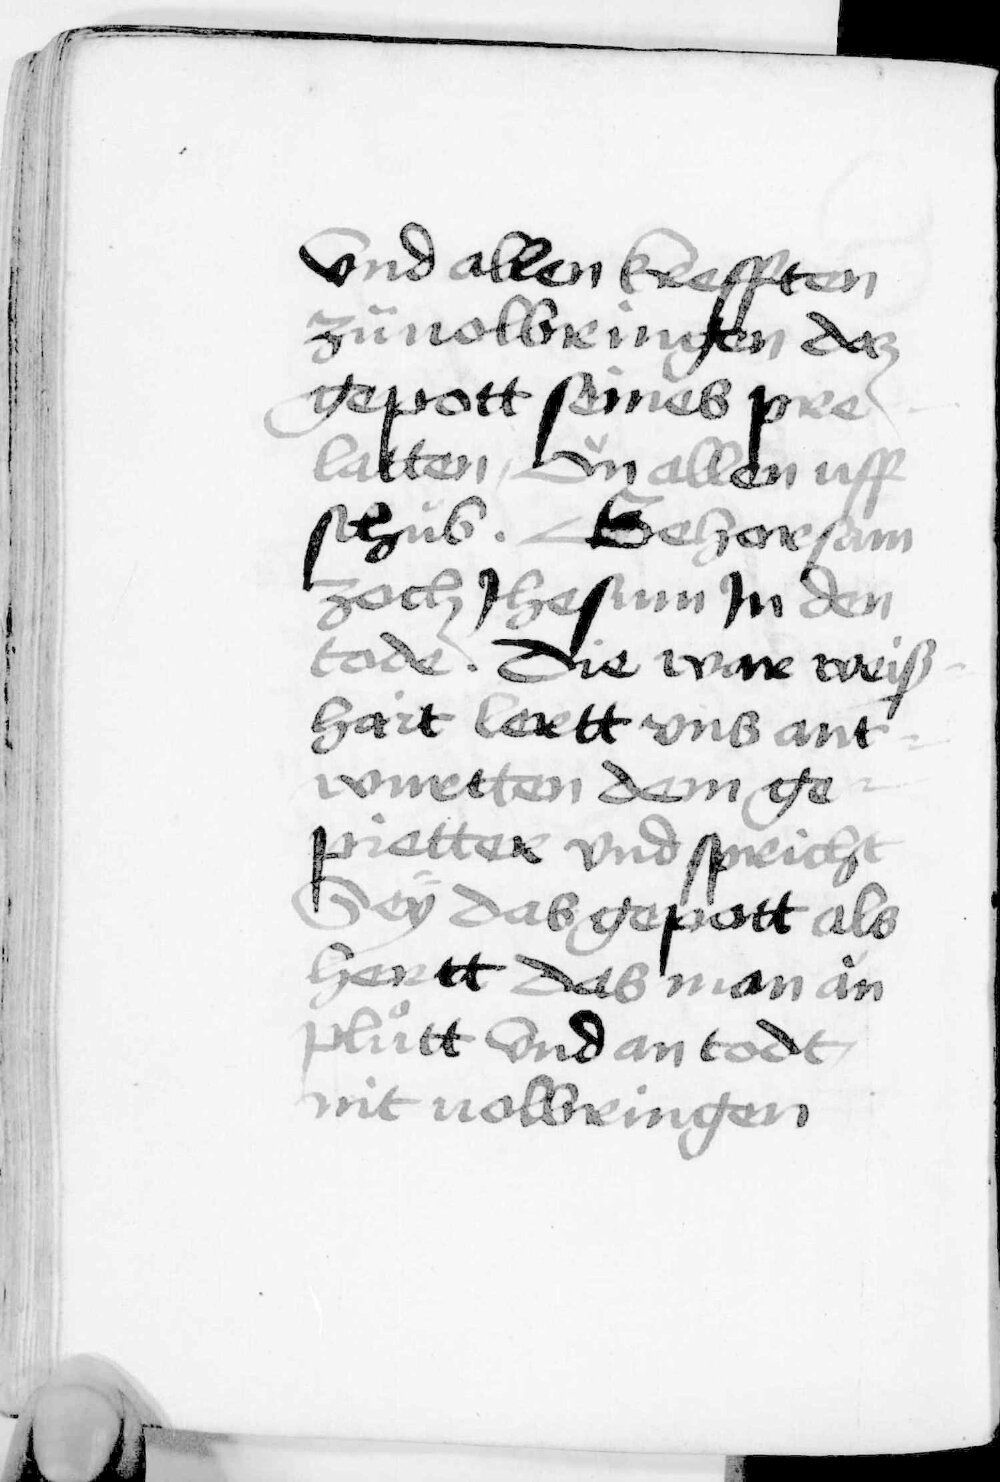 vnd allen krefften
zůuolbringen daz
gepott seines pre-
latten, On allen uff
schub. Gehorsam
zoch Jhesum In den
tode. Die war weiß-
hait lertt vns ant-
wurtten dem ge-
pietter vnd spricht
Seÿ das gepott als
hertt das man ǎn
plůtt vnd an todt,
nit uolbringen